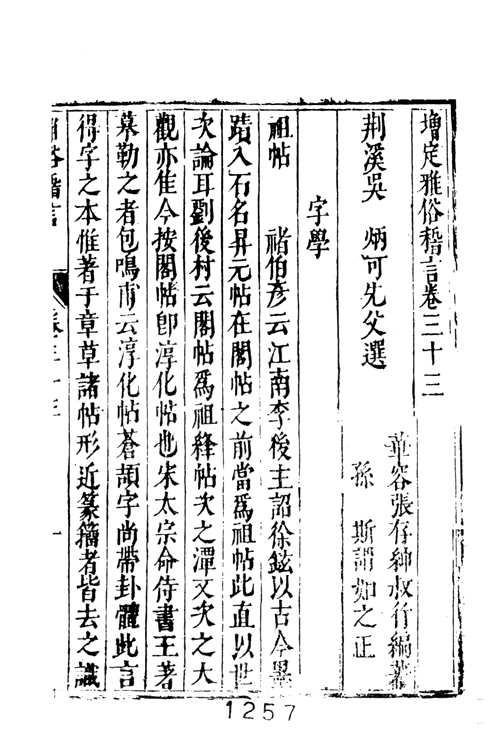 增定雅俗稽言卷三十三
華容張存紳叔行編叢
荆溪吳　炳可先父選
孫　斯謂如之正
字學
祖帖　禇伯彥云江南李後主詔徐鉉以古今墨
蹟入石名昇元帖在閣帖之前當爲祖帖此直以世
次論耳劉後村云閣帖爲祖絳帖次之潭又次之大
觀亦佳今按閣帖卽淳化帖也宋太宗命侍書王著
摹勒之者包鳴甫云淳化帖蒼頡字尚帶卦體此言
得字之本惟著于章草諸帖形近篆籀者皆去之識
卷三十三　一
1257